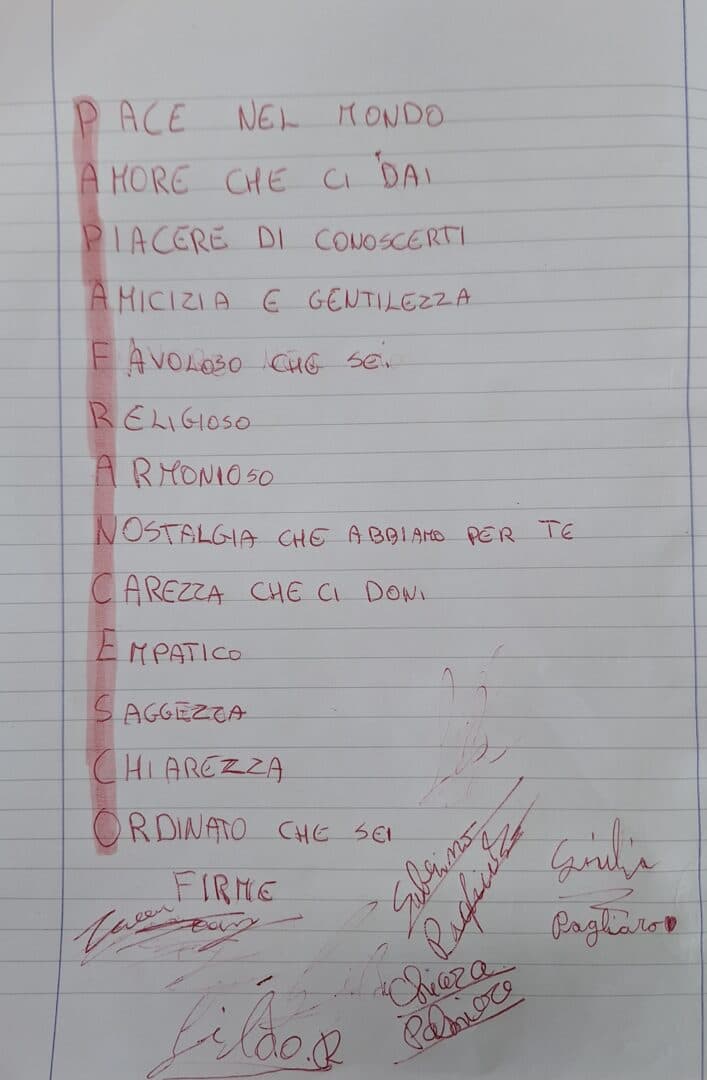 PACE NEL MONDO
AMORE CHE CI DAI
PIACERE DI CONOSCERTI
AMICIZIA E GENTILEZZA
FAVOLOSO CHE SEI
RELIGIOSO
ARMONIOSO
NOSTALGIA CHE ABBIAMO PER TE
CAREZZA CHE CI DONI
EMPATICO
SAGGEZZA
CHIAREZZA
ORDINATO CHE SEI
FIRME
Giulia
Pagliaro
Chiara